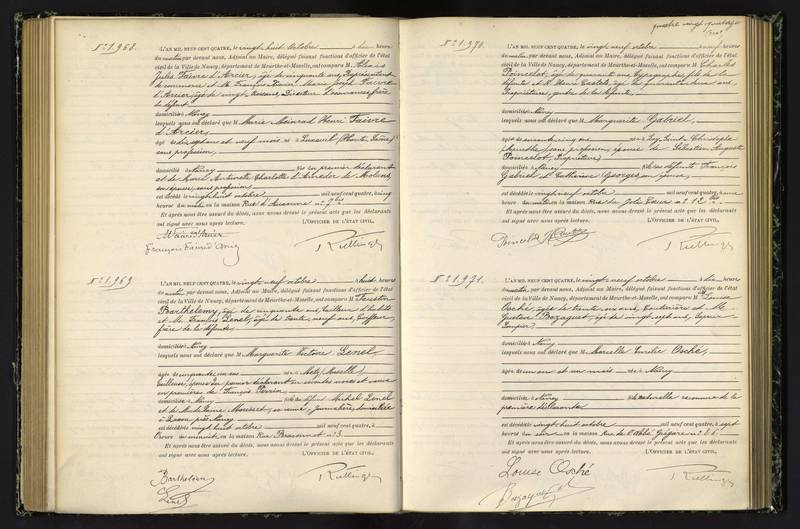 N° 1968.
L'AN MIL NEUF CENT QUATRE, le vingt huit Octobre à dix heures
du matin par devant nous, Adjoint au Maire, délégué faisant fonctions d'officier de l'état
civil de la Ville de Nancy, département de Meurthe-et-Moselle, ont comparu M. Alexis
Jules Faivre d'Arcier, âgé de cinquante ans, Représentant
de commerce et M. François Xavier Marie Joseph Faivre
d'Arcier, âgé de vingt
du défunt
domiciliés à Nancy
lesquels nous ont déclaré que M. Marie Meinrad Henri Faivre
d'Arcier,
âgé de dix sept ans et neuf mois né à Luxeuil (Haute Saône)
sans profession,
domicilié à Nancy fils du premier déclarant
et de Marie Antoinette Charlotte
son épouse, sans profession
est décédé vingt huit octobre mil neuf cent quatre, à cinq
heures du matin en la maison Rue d'Auxonne n° 7 bis
Et après nous être assuré du décès, nous avons dressé le présent acte que les déclarants
ont signé avec nous après lecture. L'OFFICIER DE L'ÉTAT CIVIL,
François Faivre d'Arcier
N° 1969
L'AN MIL NEUF CENT QUATRE, le vingt neuf octobre à huit heures
du matin, par devant nous, Adjoint au Maire, délégué faisant fonctions d'officier de l'état
civil de la Ville de Nancy, département de Meurthe-et-Moselle, ont comparu M.
Barthélemy, âgé de cinquante ans, Tailleur d'habits
et M. François Lenel, âgé de trente neuf ans, Coiffeur,
frère de la défunte,
domiciliés à Nancy
lesquels nous ont déclaré que M. Marguerite Victoire Lenel,
âgée de cinquante un ans née à Metz (Moselle)
tailleuse, épouse du premier déclarant en secondes noces et veuve
en premières de François Perrin
domiciliée à Nancy fille de défunt Michel Lenel
et de Madeleine sa veuve, Journalière, domiciliée
à près Nancy
est décédée vingt huit octobre mil neuf cent quatre, à
heures en la maison Rue Braconnot n° 3
Et après nous être assuré du décès, nous avons dressé le présent acte que les déclarants
ont signé avec nous après lecture. L'OFFICIER DE L'ÉTAT CIVIL,
Barthélemy
Lenel
quatre vingt quatorze
N° 1970.
L'AN MIL NEUF CENT QUATRE, le vingt neuf octobre à neuf heures
du matin par devant nous, Adjoint au Maire, délégué faisant fonctions d'officier de l'état
civil de la Ville de Nancy, département de Meurthe-et-Moselle, ont comparu M. Charles
Poinselot, âgé de quarante ans, Typographe, fils de la
défunte et M. Henri
Propriétaire, gendre de la défunte,
domiciliés à Nancy
lesquels nous ont déclaré que M. Marguerite Gabriel,
âgée de ans née à
sans profession, épouse de Sébastien Auguste
Poinselot, Propriétaire
domiciliée à Nancy fille de défunts François
Gabriel et Catherine Georges, son épouse,
est décédée vingt neuf octobre mil neuf cent quatre, à une
heure du matin en la maison Rue du Joli Coeur n° 12 bis.
Et après nous être assuré du décès, nous avons dressé le présent acte que les déclarants
ont signé avec nous après lecture. L'OFFICIER DE L'ÉTAT CIVIL,
N° 1971.
L'AN MIL NEUF CENT QUATRE, le vingt neuf octobre à dix heures
du matin, par devant nous, Adjoint au Maire, délégué faisant fonctions d'officier de l'état
civil de la Ville de Nancy, département de Meurthe-et-Moselle, ont comparu M. Louise
Osché, âgée de trente six ans, Couturière et M.
Gustave Bozaquet, âgé de vingt sept ans, Sapeur
Pompier,
domiciliés à Nancy
lesquels nous ont déclaré que M. Marcelle Emilie Osché,
âgée de un an et un mois née à Nancy
domiciliée à Nancy fille naturelle reconnue de la
première déclarante
est décédée vingt huit octobre mil neuf cent quatre, à sept
heures du soir en la maison Rue de l'Abbé Grégoire n°
Et après nous être assuré du décès, nous avons dressé le présent acte que les déclarants
ont signé avec nous après lecture. L'OFFICIER DE L'ÉTAT CIVIL,
Louise Osché
Bozaquet